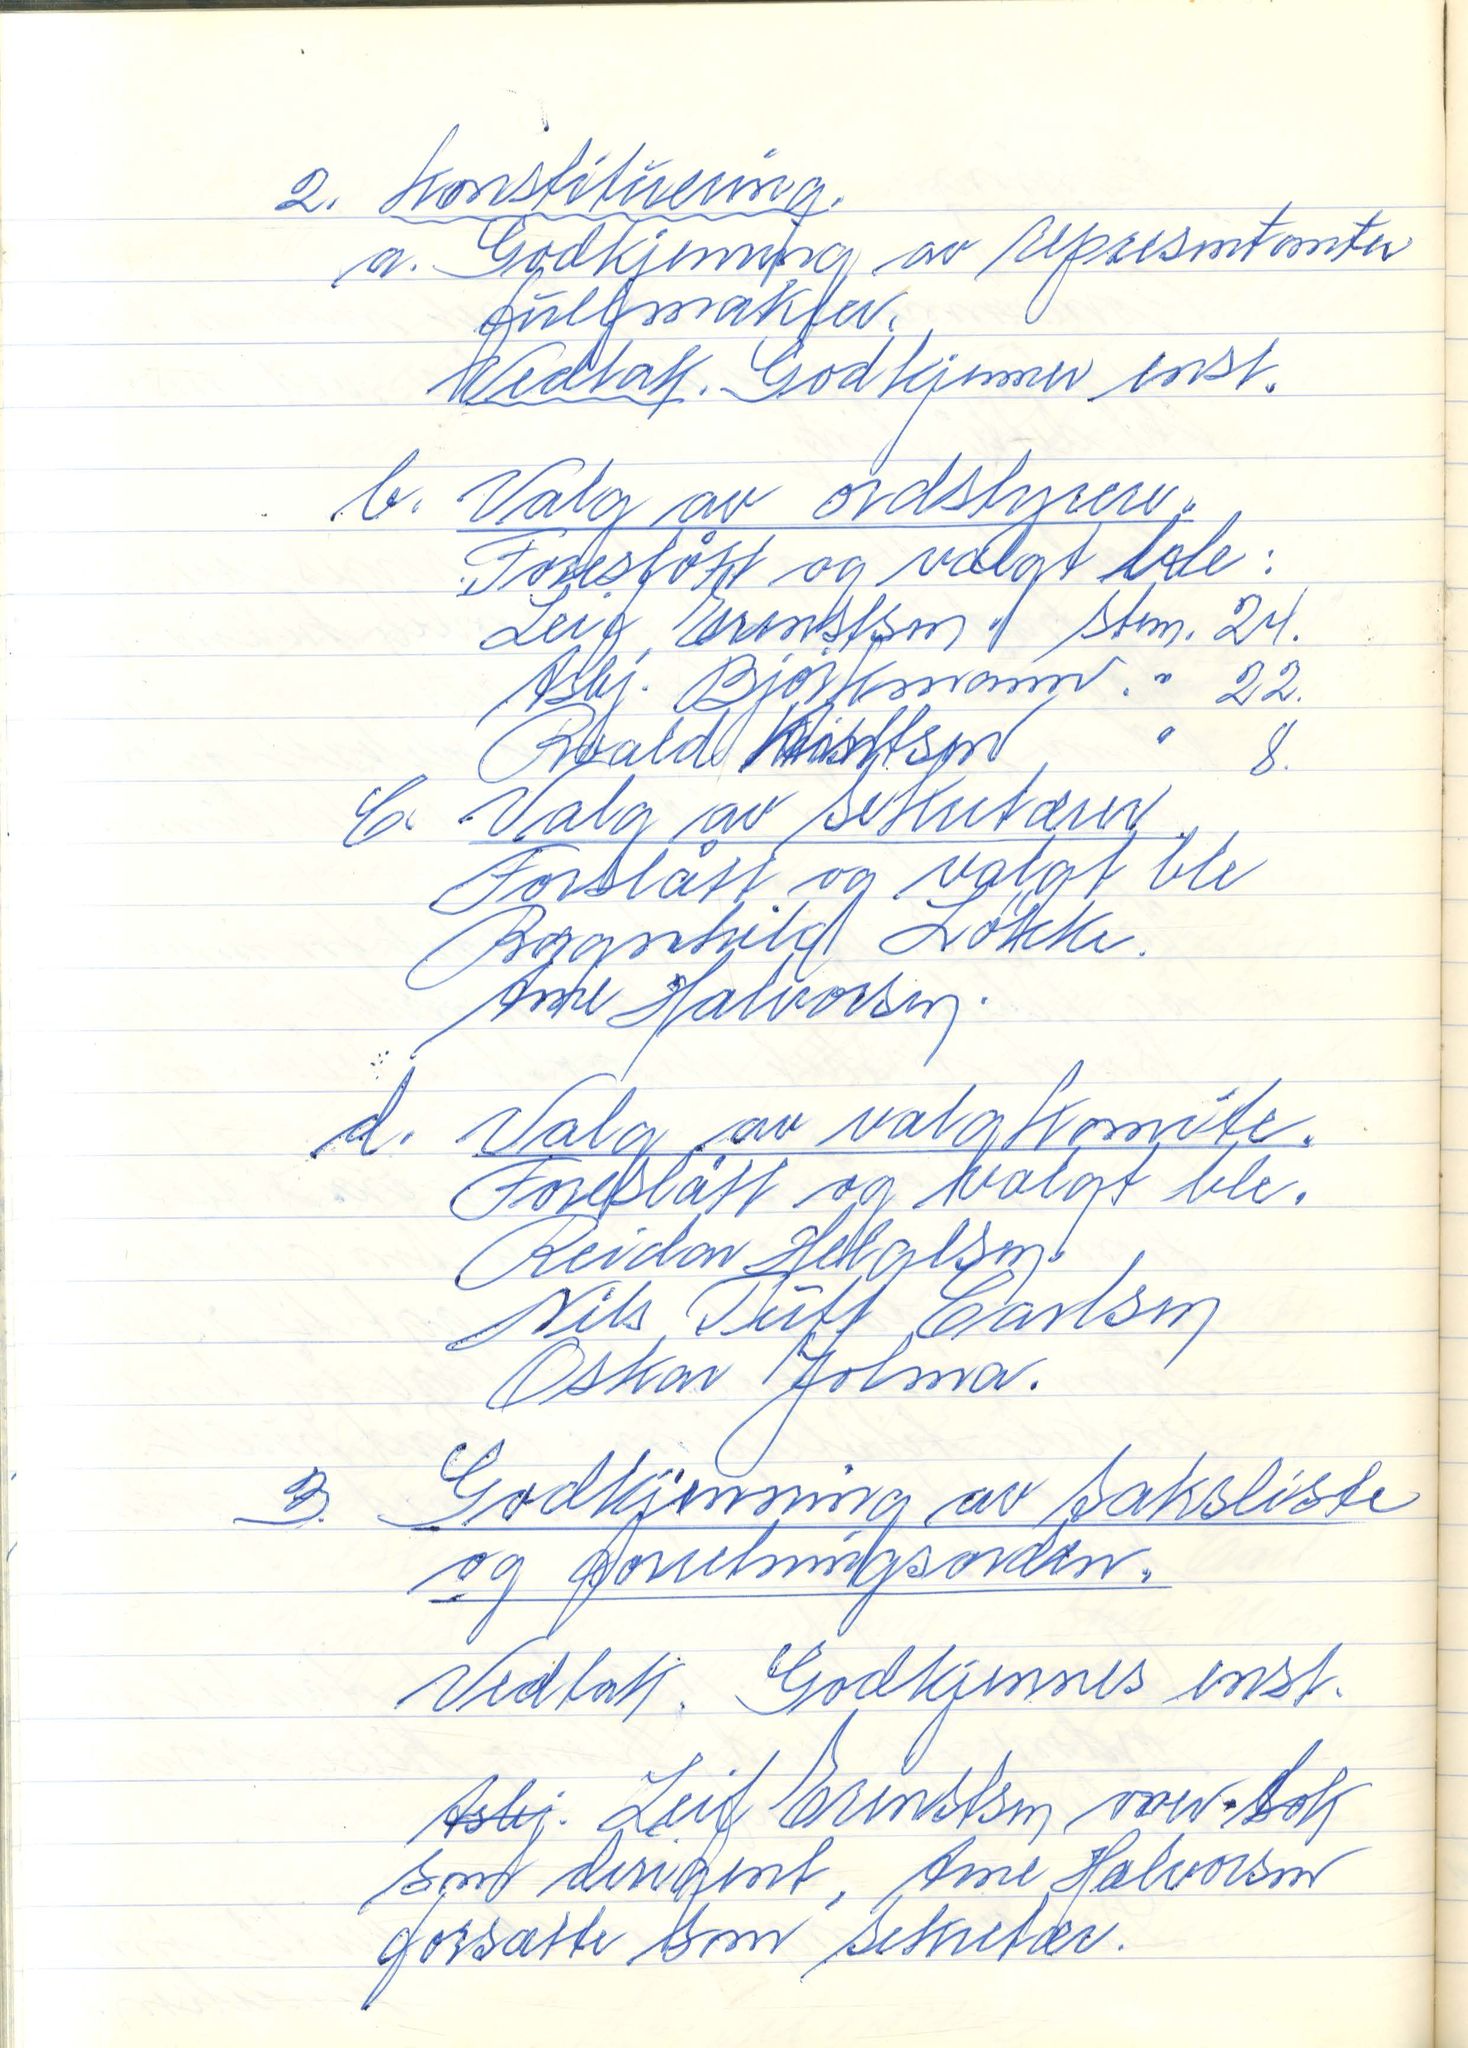 2. Konstituering.
a. Godkjenning av representanter
fullmakter.
Vedtak. Godkjenner enst.
b. Valg av ordstyrere.
Foreslått og valgt ble:
Leif Ernstsen stem. 24.
Asbj. Björkmann. " 22.
Roald " 8.
c. Valg av sekretærer
Forslått og valgt ble
Ragnhild Løkke.
Arne Halvorsen.
d. Valg av valgkomite.
Foreslått og valgt ble.
Reidar Helgesen.
Nils Tuff Carlsen
Oskar Jolma.
3. Godkjenning av saksliste
og forretningsorden.
Vedtak. Godkjennes enst.
Asbj. Leif Ernstsen over-tok
som dirigent, Arne Halvorsen
forsatte som sekretær.